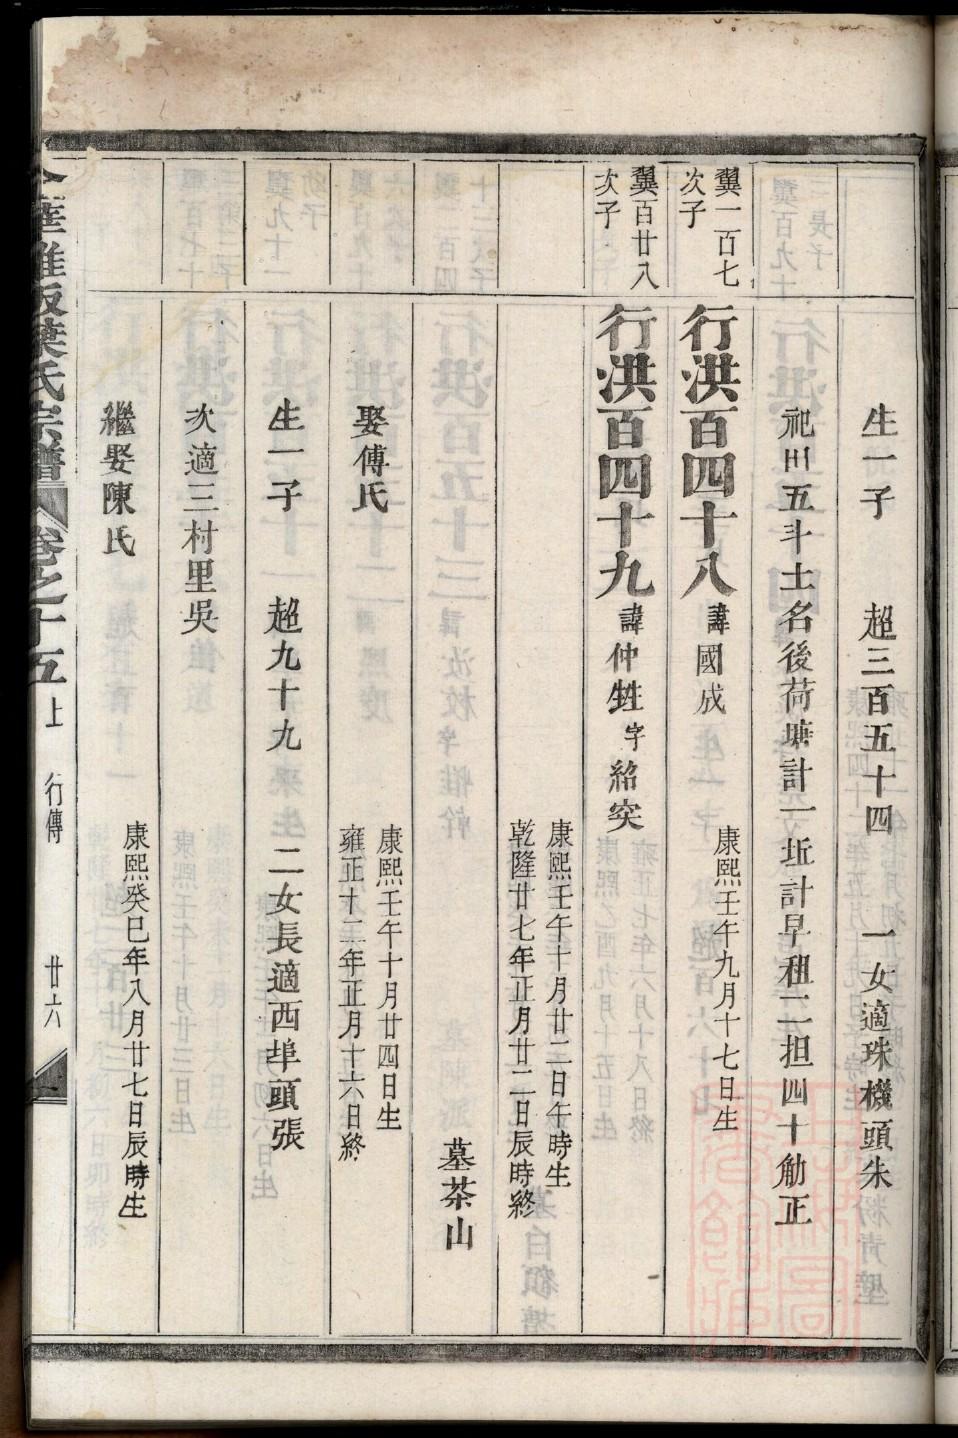 生一子 超三百五十四 一女適珠機頭朱
祀田五斗土名後荷塘計一坵計早租二担四十觔正
翼一百七
次子
行洪百四十八 諱國成 康熙壬午九月十七日生
翼百廿八
次子
行洪百四十九 諱仲甡 字紹奕
康熙壬午十月廿二日午時生
乾隆廿七年正月廿二日辰時終
墓茶山
娶傅氏
康熙壬午十月廿四日生
雍正十二年正月十六日終
生一子 超九十九 二女長適西埠頭張
次適三村里吳
繼娶陳氏 康熙癸巳年八月廿七日辰時生
華雅畈葉氏宗譜 卷之十五上 行傳 廿六